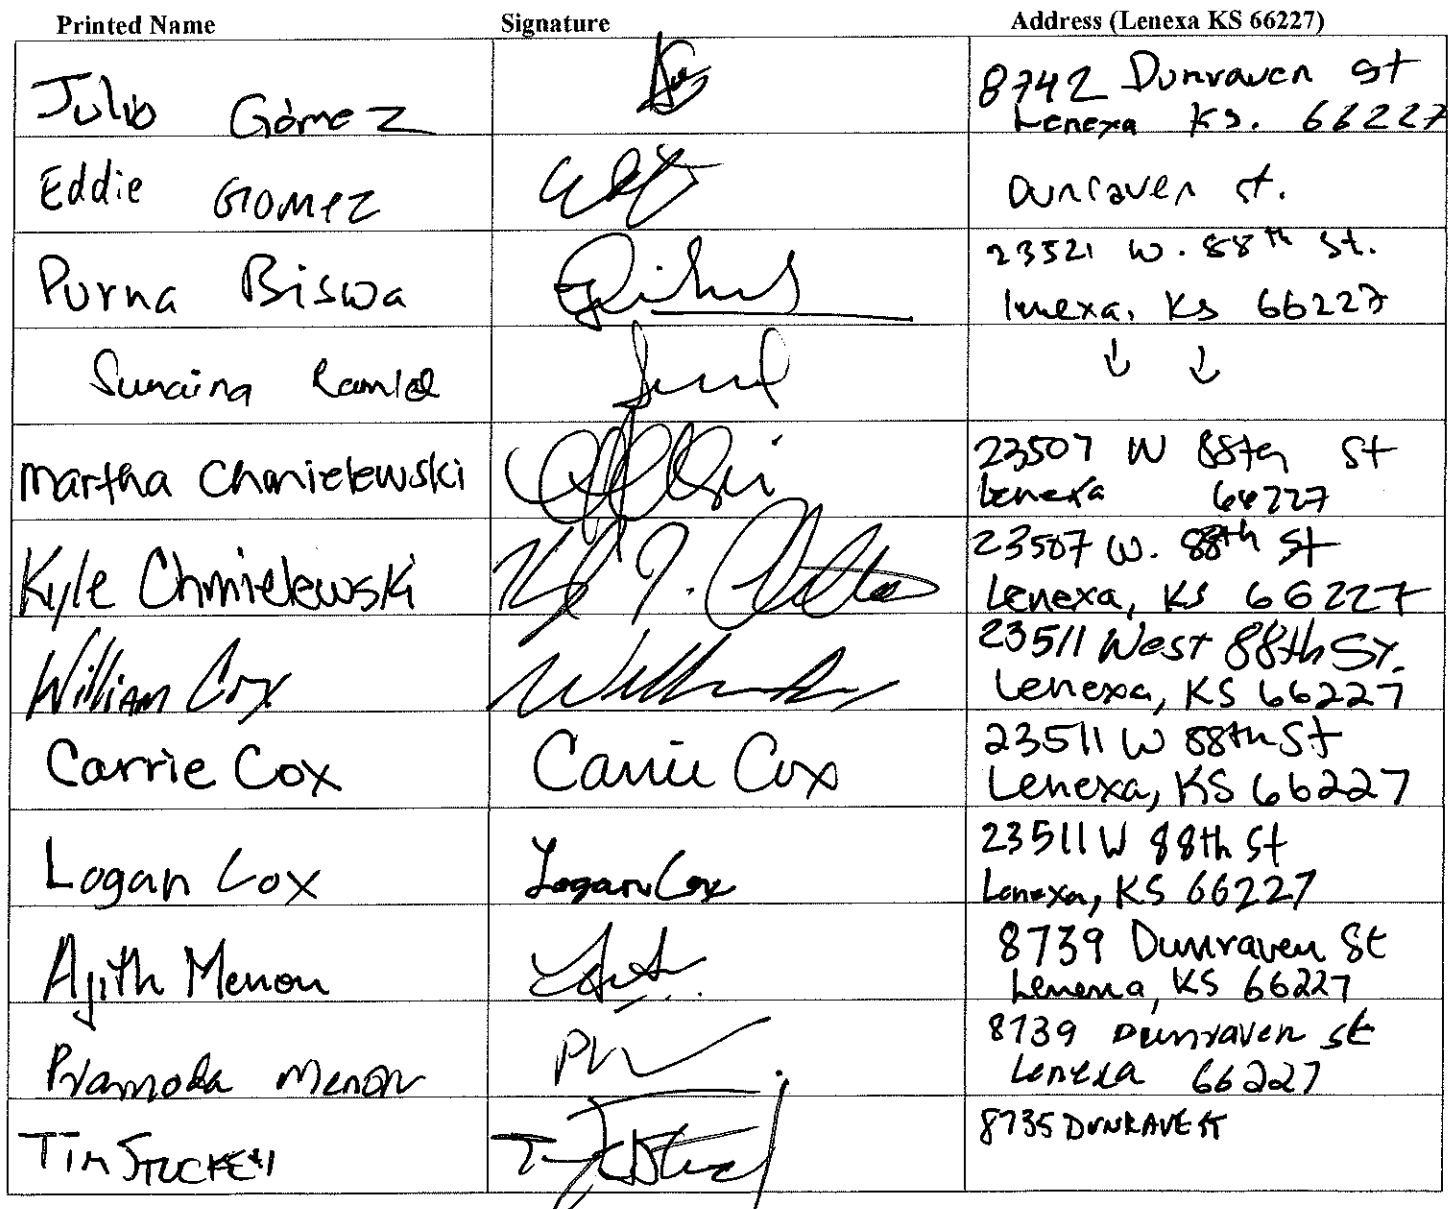 Printed Name Signature Address (Lenexa KS 66227)
Julio Gómez 8742 Dunraven St
Lenexa KS. 66227
Eddie Gomez Dunraven St.
Purna Biswa 23521 W. 88th St.
lenexa, KS 66227
Sunaina ↓ ↓
Martha Chmielewski 23507 W 88th St
Lenexa 66227
Kyle Chmielewski 23507 W. 88th St
Lenexa, KS 66227
William Cox 23511 West 88th St.
Lenexa, KS 66227
Carrie Cox Carrie Cox 23511 W 88th St
Lenexa, KS 66227
Logan Cox Logan Cox 23511 W 88th St
Lenexa, KS 66227
Ajith Menon 8739 Dunraven St
Lenexa, KS 66227
Pramoda Menon 8739 Dunraven St
Lenexa 66227
Tim 8735 DUNRAVEN